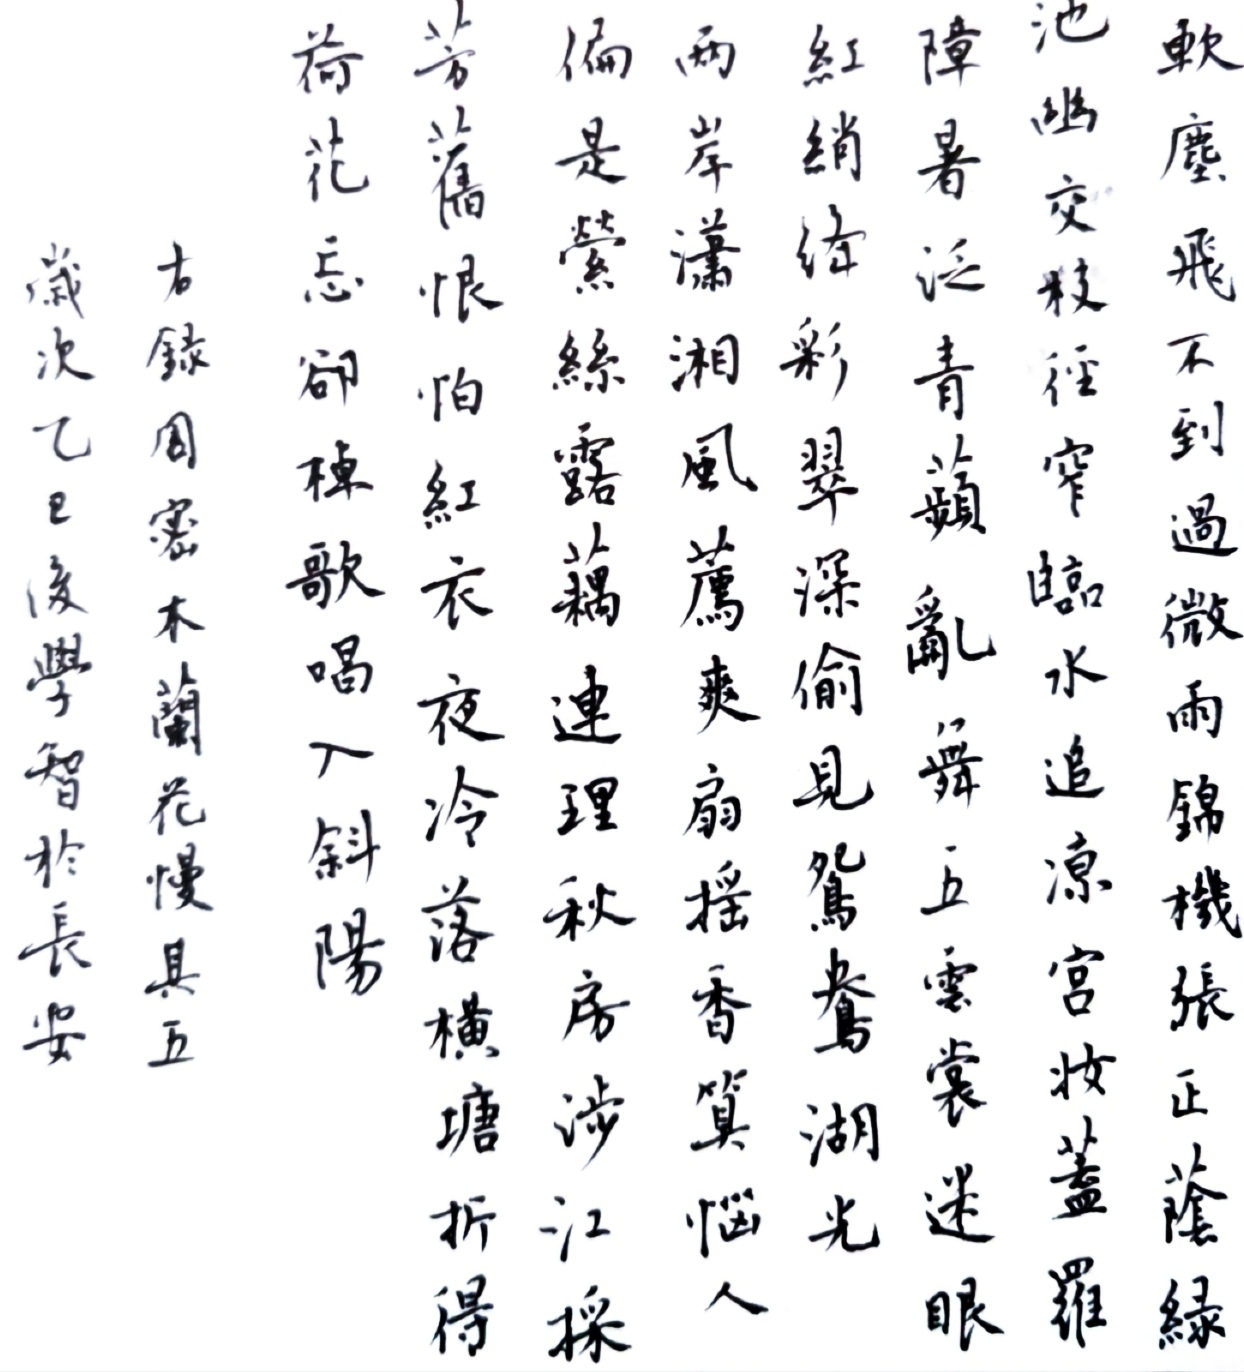 軟塵飛不到過微雨錦機張正蔭緑
池幽交枝徑窄臨水追涼宮妝蓋羅
障暑泛青蘋亂舞五雲裳迷眼
紅綃絳彩翠深偷見鴛鴦湖光
兩岸瀟湘風薦爽扇摇香算惱人
偏是縈絲露藕連理秋房涉江採
芳舊恨怕紅衣夜冷落橫塘折得
荷花忘卻棹歌唱入斜陽
右録周密木蘭花慢其五
歲次乙巳後學智於長安